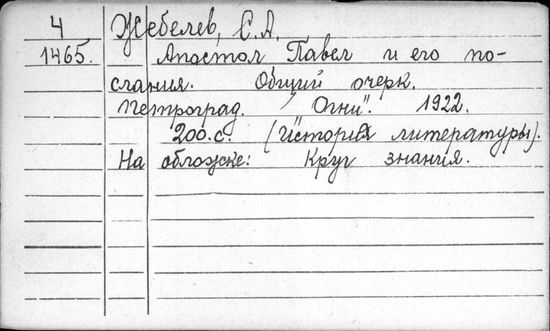 4 Жебелев, С.А.
1465. Апостол Павел и его по-
слания. Общий очерк.
Петроград. "Огни". 1922.
200.с. (История литературы).
На обложке: Круг знания.